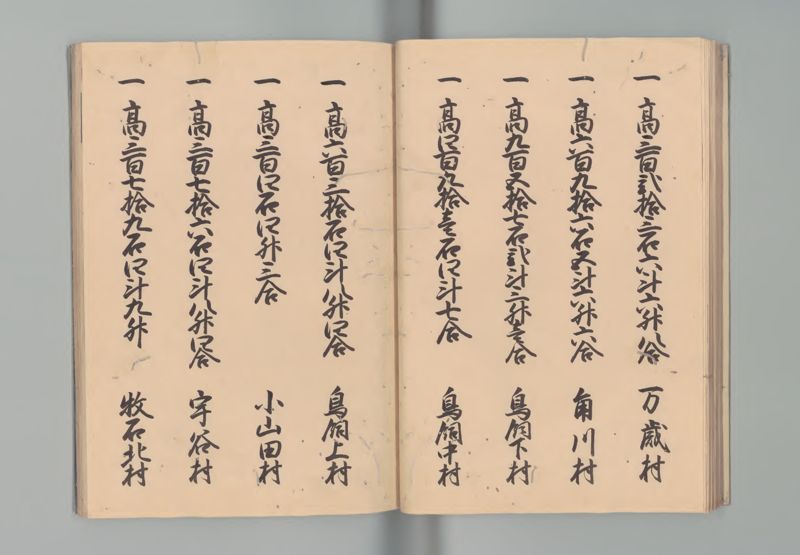 一 高三百弐拾三石六斗六升八合 万歳村
一 高六百九拾六石五斗六升六合 角川村
一 高九百五拾七石弐斗三升壱合 鳥飼下村
一 高四百八拾壱石四斗七合 鳥飼中村
一 高六百三拾石四斗八升四合 鳥飼上村
一 高三百四石四升三合 小山田村
一 高三百七拾六石四斗八升四合 宇谷村
一 高三百七拾九石四斗九升 牧石北村